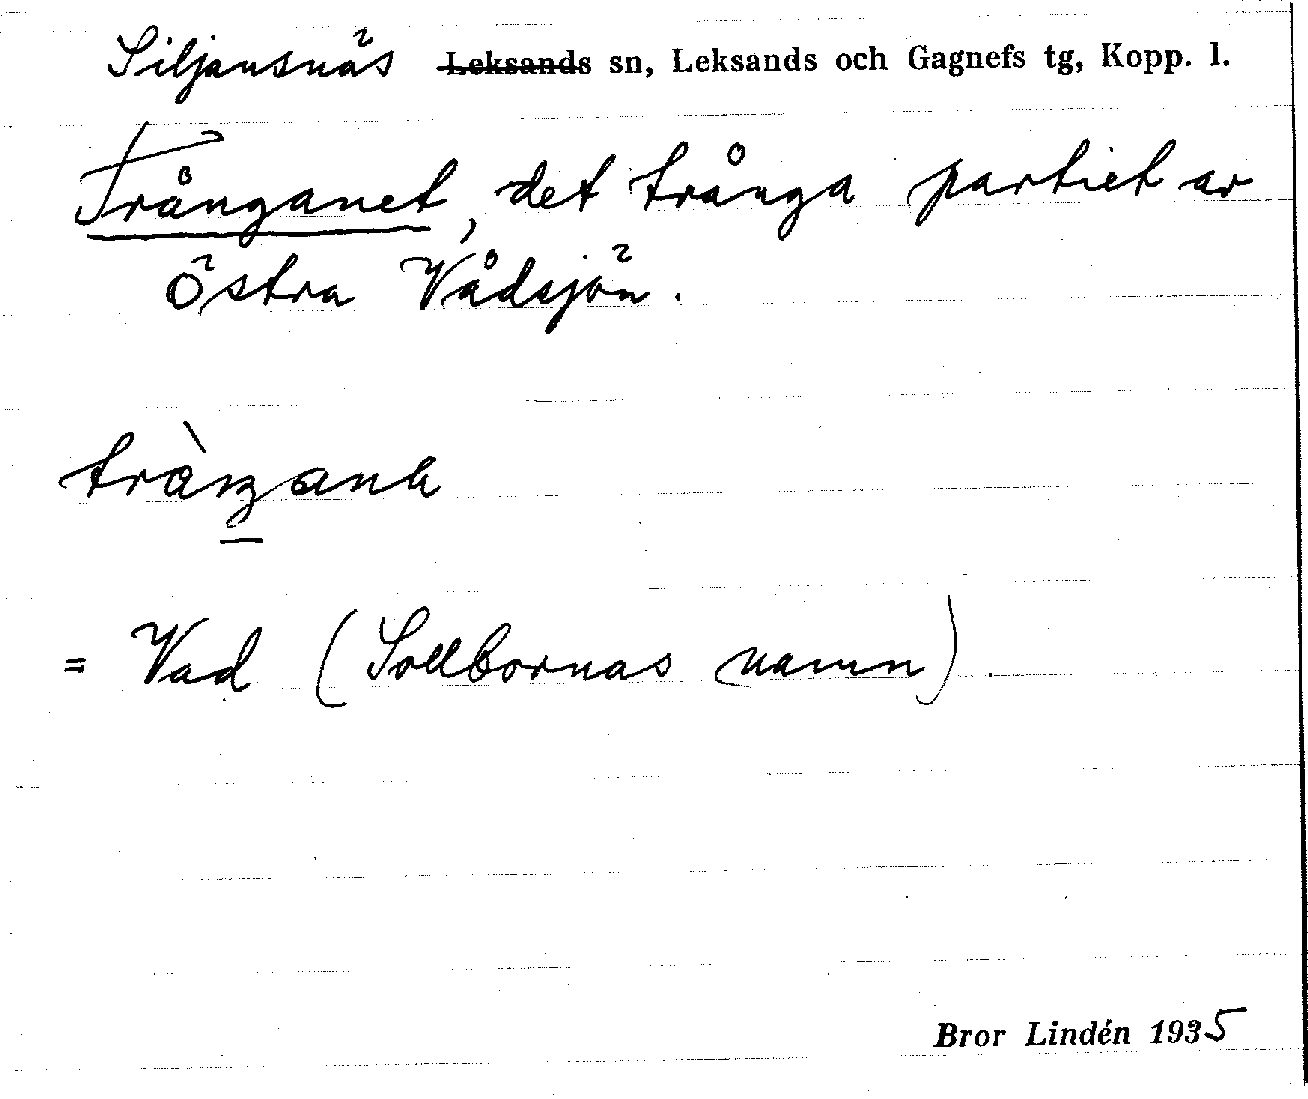 Siljansnäs Leksands sn, Leksands och Gagnefs tg, Kopp. l.
Trånganet, det trånga partiet av
östra Vådsjön.
= Vad (Sollbornas namn).
Bror Lindén 1935